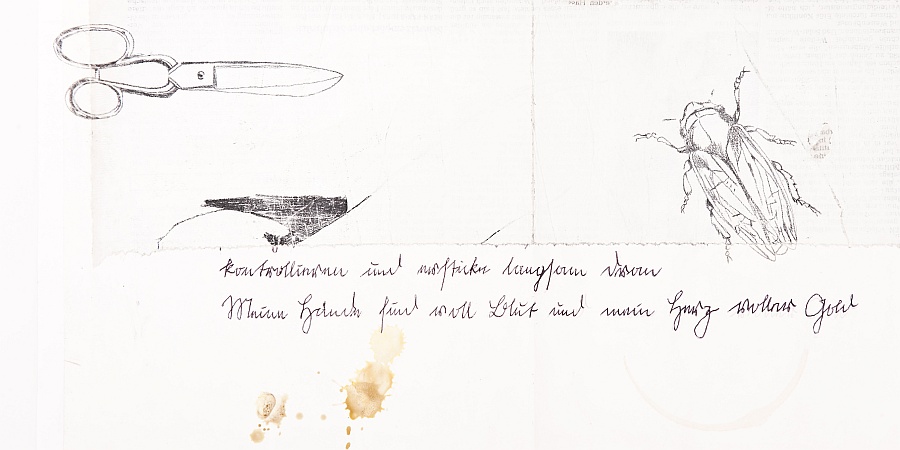 kontrollieren und ersticke langsam dran
Meine Hände sind voll Blut und mein Herz voller Gold